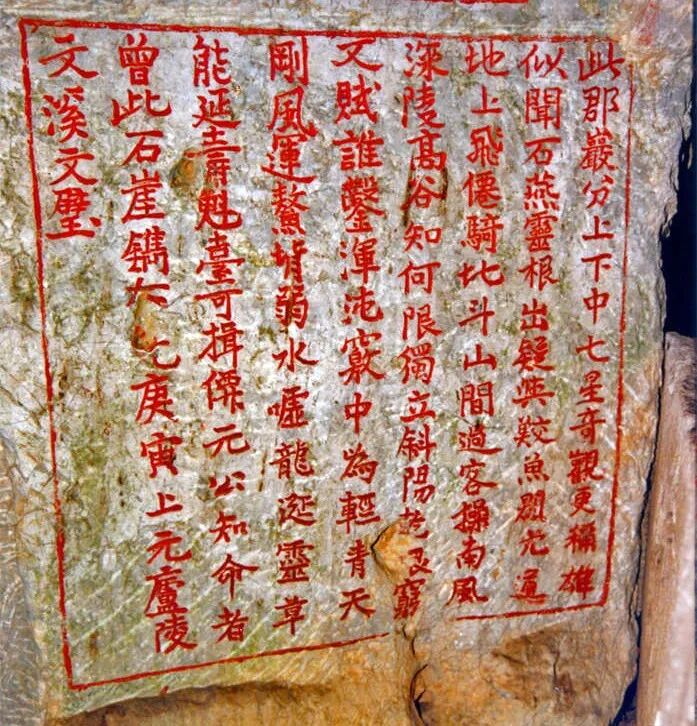 此郡巖分上下中七星奇觀更稱雄
似聞石燕靈根出疑與鮫魚穴通
地上飛僊騎北斗山間過客操南風
深陵高谷知何限獨立斜陽窮
又賦誰鑿渾沌竅中為輕青天
剛風運鰲背弱水噓龍涎靈草
能延壽魁臺可揖僊元公知命者
曾此石崖鐫庚寅上元廬陵
文溪文璧